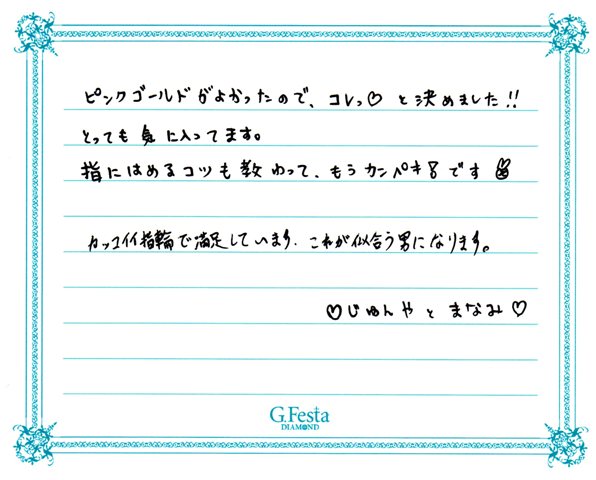 ピンクゴールドがよかったので、コレっ♡ と決めました!!
とっても気に入ってます。
指にはめるコツも教わって、もうカンペキ!です
カッコイイ指輪で満足しています。これが似合う男になります。
♡じゅんやとまなみ♡
G.Festa
DIAMOND